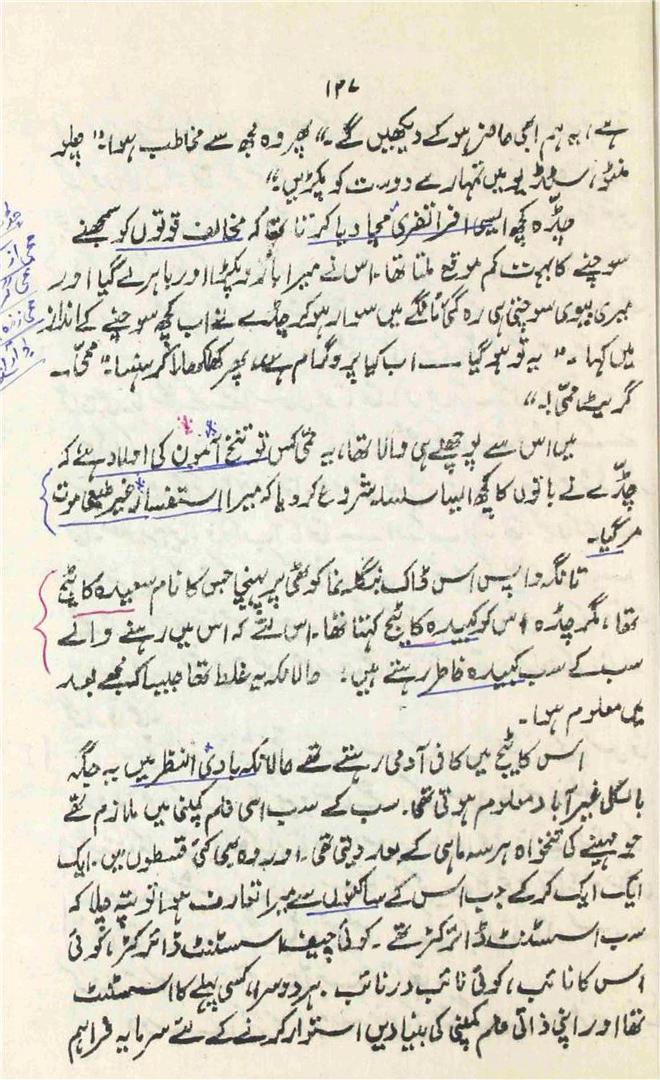 ۱۳۷
ہے، یہ ہم ابھی حاضر ہو کے دیکھیں گے۔“ پھر وہ مجھ سے مخاطب ہوا: ”چلو
منٹو، سٹوڈیو میں تمہارے دوست کو پکڑیں۔“
چڈہ کچھ ایسی افراتفری مچا دیا کرتا تھا کہ مخالف قوتوں کو سمجھنے
سوچنے کا بہت کم موقع ملتا تھا۔ اس نے میرا بازو پکڑا اور باہر لے گیا اور
میری بیوی سوچتی ہی رہ گئی تانگے میں سوار ہو کر چڈے نے اب کچھ سوچنے کے انداز
میں کہا۔ ”یہ تو ہو گیا — اب کیا پروگرام ہے“ پھر کھلکھلا کر ہنسا: ”ممی۔
گریٹ ممی!۔“
میں اس سے پوچھنے ہی والا تھا، یہ ممی کس توتنخ آمون کی اولاد ہے کہ
چڈے نے باتوں کا کچھ ایسا سلسلہ شروع کر دیا کہ میرا استفسار غیر طبعی موت
مر گیا۔
تانگہ واپس اس ڈاک بنگلہ نما کوٹھی پر پہنچا جس کا نام سعیدہ کاٹیج
تھا، مگر چڈہ اس کو کبیدہ کاٹیج کہتا تھا۔ اس لئے کہ اس میں رہنے والے
سب کے سب کبیدہ خاطر رہتے ہیں؛ حالانکہ یہ غلط تھا جیسا کہ مجھے بعد
میں معلوم ہوا۔
اس کاٹیج میں کافی آدمی رہتے تھے حالانکہ بادی النظر میں یہ جگہ
بالکل غیر آباد معلوم ہوتی تھی۔ سب کے سب اسی فلم کمپنی میں ملازم تھے
جو مہینے کی تنخواہ ہر سہ ماہی کے بعد دیتی تھی۔ اور وہ بھی کئی قسطوں میں۔ ایک
ایک ایک کر کے جب اس کے ساکنوں سے میرا تعارف ہوا تو پتہ چلا کہ
سب اسسٹنٹ ڈائرکٹر تھے۔ کوئی چیف اسسٹنٹ ڈائرکٹر، کوئی
اس کا نائب، کوئی نائب در نائب۔ ہر دوسرا، کسی پہلے کا اسسٹنٹ
تھا اور اپنی ذاتی فلم کمپنی کی بنیادیں استوار کرنے کے لئے سرمایہ فراہم